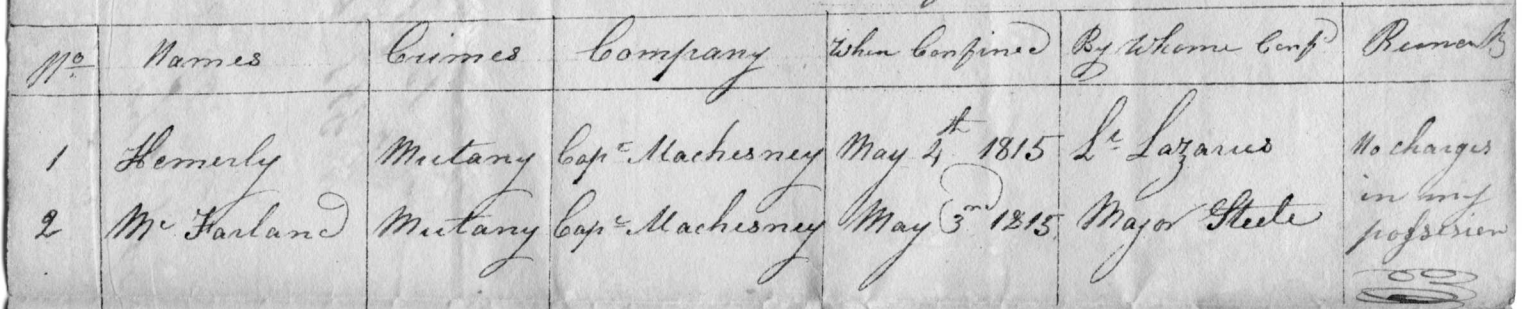 No. Names Crimes Company When Confined By Whome Confd Remarks
1 Hemerly Mutany Capt Machesney May 4th 1815 Lt Lazarus No charges
in my
2 Mc Farland Mutany Capt Machesney May 3rd 1815 Major Steele possesion